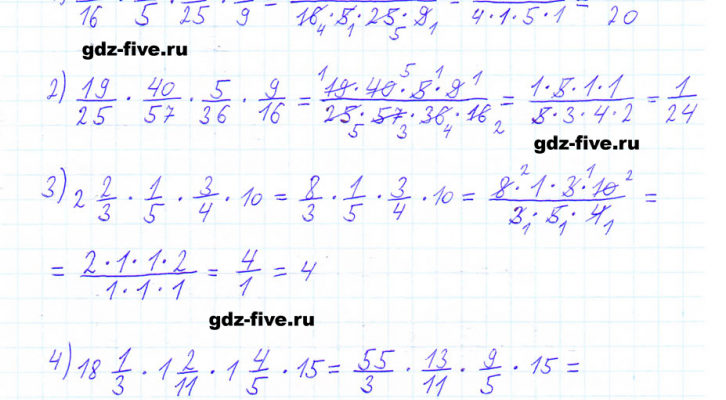 16 · 5 · 25 · 9 = 16·5·25·9 = 4·1·5·1 = 20
gdz-five.ru
2) 19/25 · 40/57 · 5/36 · 9/16 = 19·40·5·9/25·57·36·16 = 1·5·1·1/5·3·4·2 = 1/24
gdz-five.ru
3) 2 2/3 · 1/5 · 3/4 · 10 = 8/3 · 1/5 · 3/4 · 10 = 8·1·3·10/3·5·4 =
= 2·1·1·2/1·1·1 = 4/1 = 4
gdz-five.ru
4) 18 1/3 · 1 2/11 · 1 4/5 · 15 = 55/3 · 13/11 · 9/5 · 15 =